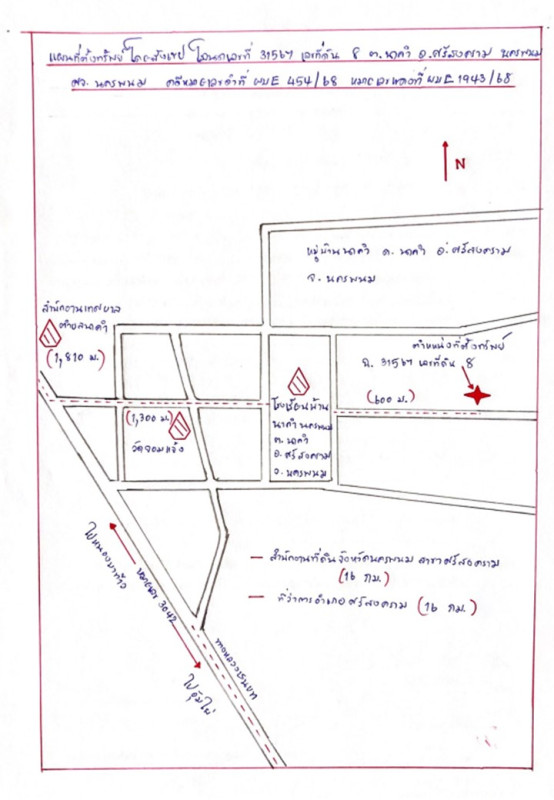 แผนที่ตั้งทรัพย์โดยสังเขป โฉนดเลขที่ 31567 เลขที่ดิน 8 ต.นาคำ อ.ศรีสงคราม นครพนม
จ. นครพนม คดีหมายเลขดำที่ ผบE 454/68 หมายเลขแดงที่ ผบE 1943/68
N
หมู่บ้านนาคำ ต. นาคำ อ. ศรีสงคราม
จ. นครพนม
สำนักงานเทศบาล
ตำบลนาคำ
(1,810 ม.)
ตำแหน่งที่ตั้งทรัพย์
ฉ. 31567 เลขที่ดิน 8
(600 ม.)
(1,300 ม.)
วัดจอมแจ้ง
โรงเรียนบ้าน
นาคำ นครพนม
ต. นาคำ
อ. ศรีสงคราม
จ. นครพนม
3042
ทางหลวงชนบท
- สำนักงานที่ดินจังหวัดนครพนม สาขาศรีสงคราม
(16 กม.)
- ที่ว่าการอำเภอศรีสงคราม (16 กม.)